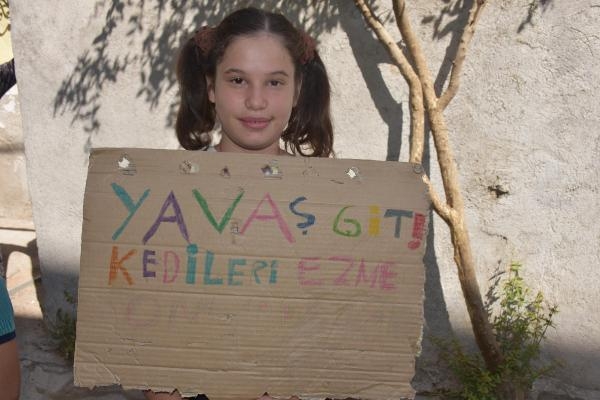 YAVAŞ GİT!
KEDİLERİ EZME